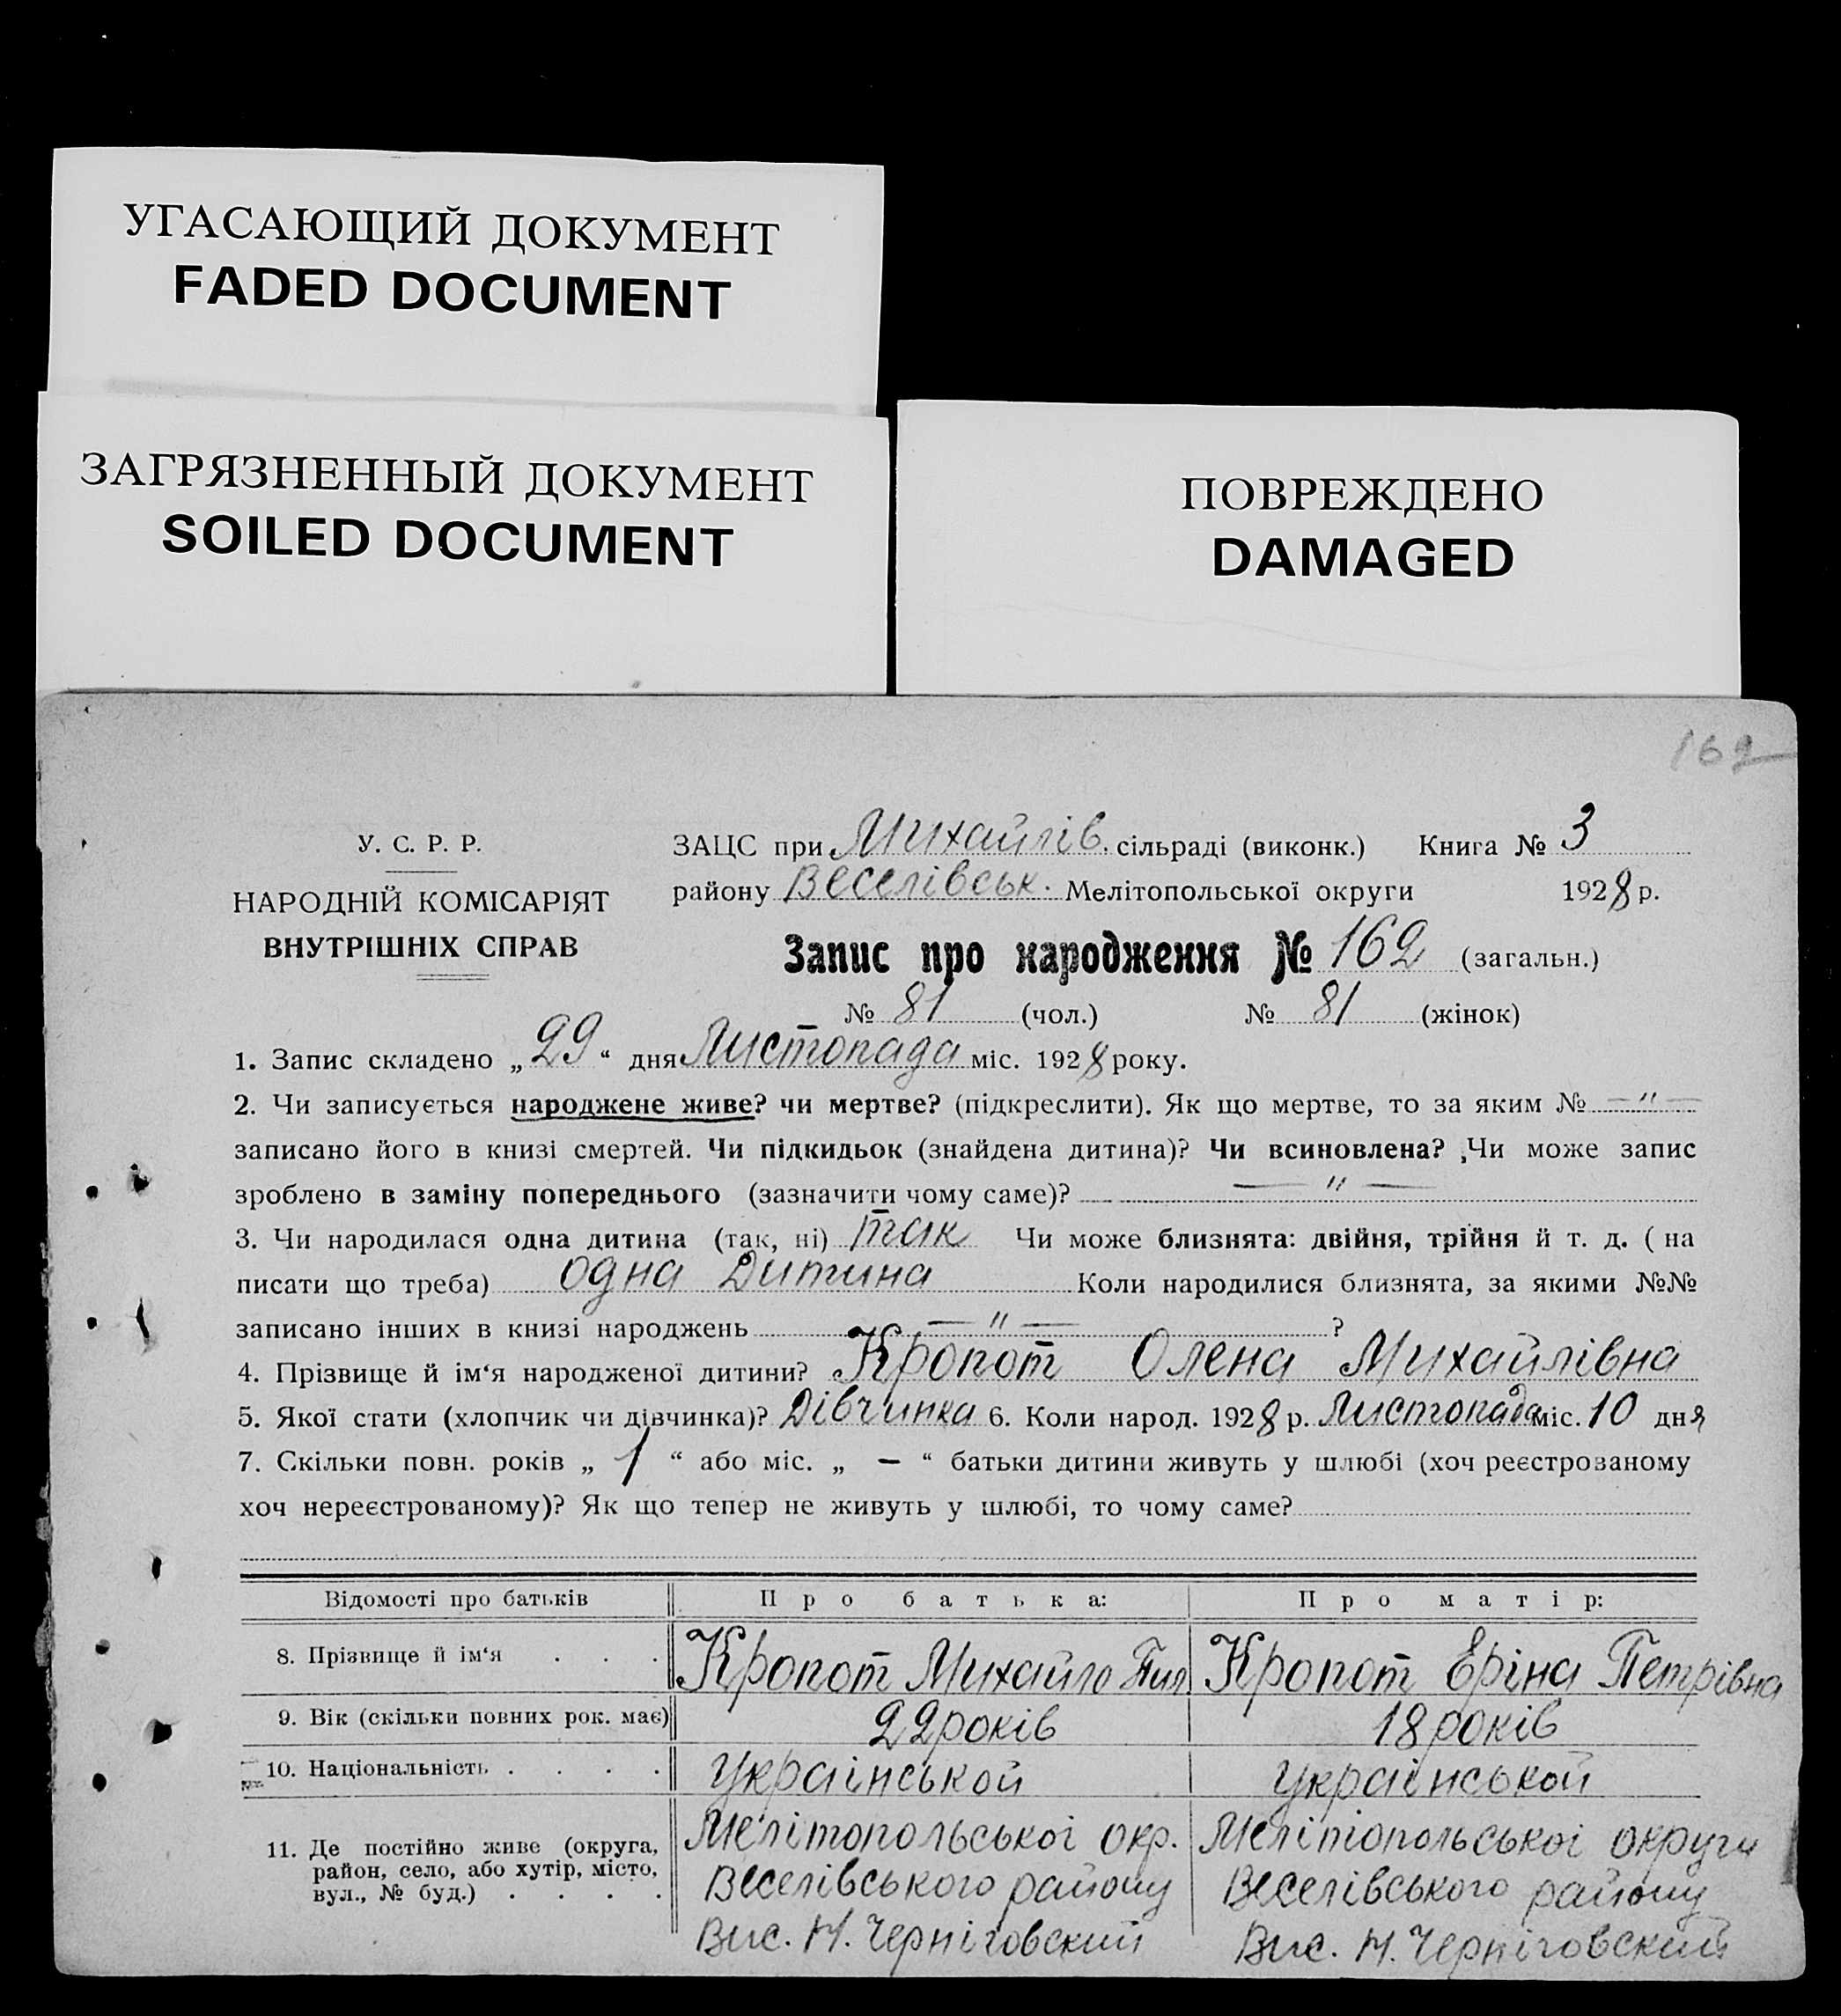 УГАСАЮЩИЙ ДОКУМЕНТ
FADED DOCUMENT
ЗАГРЯЗНЕННЫЙ ДОКУМЕНТ
SOILED DOCUMENT
ПОВРЕЖДЕНО
DAMAGED
162
У. С. Р. Р.
НАРОДНІЙ КОМІСАРІЯТ
ВНУТРІШНІХ СПРАВ
ЗАЦС при Михайлів. сільраді (виконк.) Книга № 3
району Веселівськ. Мелітопольської округи 1928 р.
Запис про народження № 162 (загальн.)
№ 81 (чол.) № 81 (жінок)
1. Запис складено „29“ дня Листопада міс. 1928 року.
2. Чи записується народжене живе? чи мертве? (підкреслити). Як що мертве, то за яким № — " —
записано його в книзі смертей. Чи підкидьок (знайдена дитина)? Чи всиновлена? Чи може запис
зроблено в заміну попереднього (зазначити чому саме)? — " —
3. Чи народилася одна дитина (так, ні) так Чи може близнята: двійня, трійня й т. д. ( на
писати що треба) одна Дитина Коли народилися близнята, за якими №№
записано інших в книзі народжень — " — ?
4. Прізвище й ім‘я народженої дитини? Кропот Олена Михайлівна
5. Якої стати (хлопчик чи дівчинка)? Дівчинка 6. Коли народ. 1928 р. Листопада міс. 10 дня
7. Скільки повн. років „ 1 “ або міс. „ — “ батьки дитини живуть у шлюбі (хоч реєстрованому
хоч нереєстрованому)? Як що тепер не живуть у шлюбі, то чому саме?
Відомості про батьків Про батька: Про матір:
8. Прізвище й ім‘я . . . Кропот Михайло Пил Кропот Еріна Петрівна
9. Вік (скільки повних рок. має) 22 років 18 років
10. Національність . . . . Українськой Українськой
11. Де постійно живе (округа, Мелітопольської окр. Мелітопольської округи
район, село, або хутір, місто, Веселівського району Веселівського району
вул., № буд.) . . . . Вис. Н. Черніговский Вис. Н. Черніговский